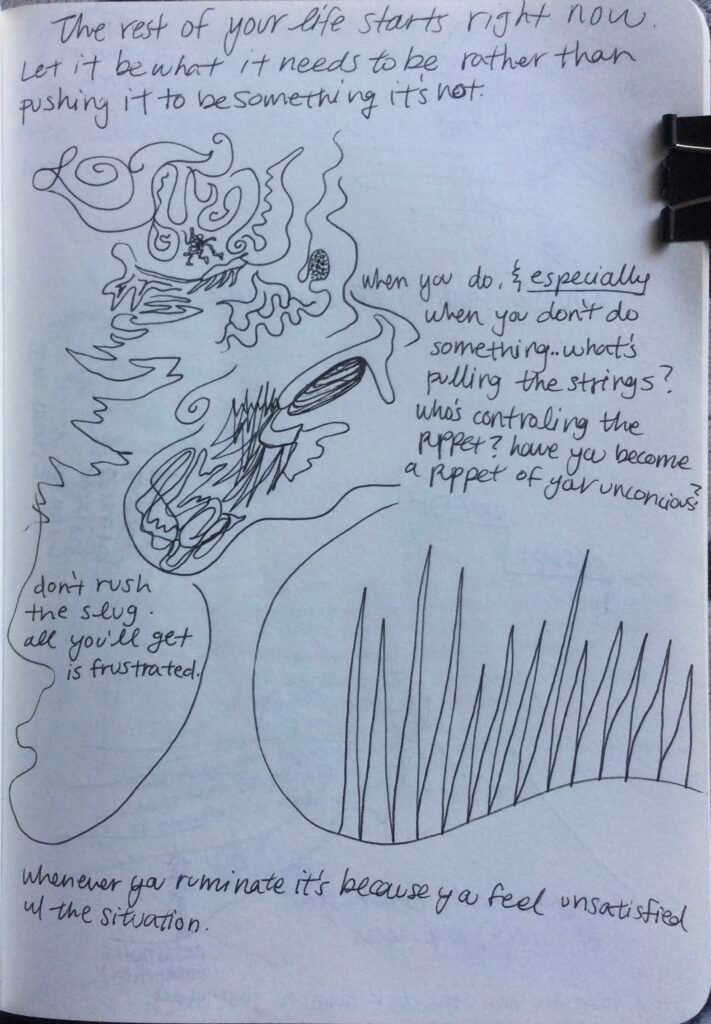 The rest of your life starts right now.
Let it be what it needs to be rather than
pushing it to be something it's not.
when you do, & especially
when you don't do
something..what's
pulling the strings?
who's controling the
puppet? have you become
a puppet of your unconcious?
don't rush
the slug.
all you'll get
is frustrated.
whenever you ruminate it's because you feel unsatisfied
w/ the situation.